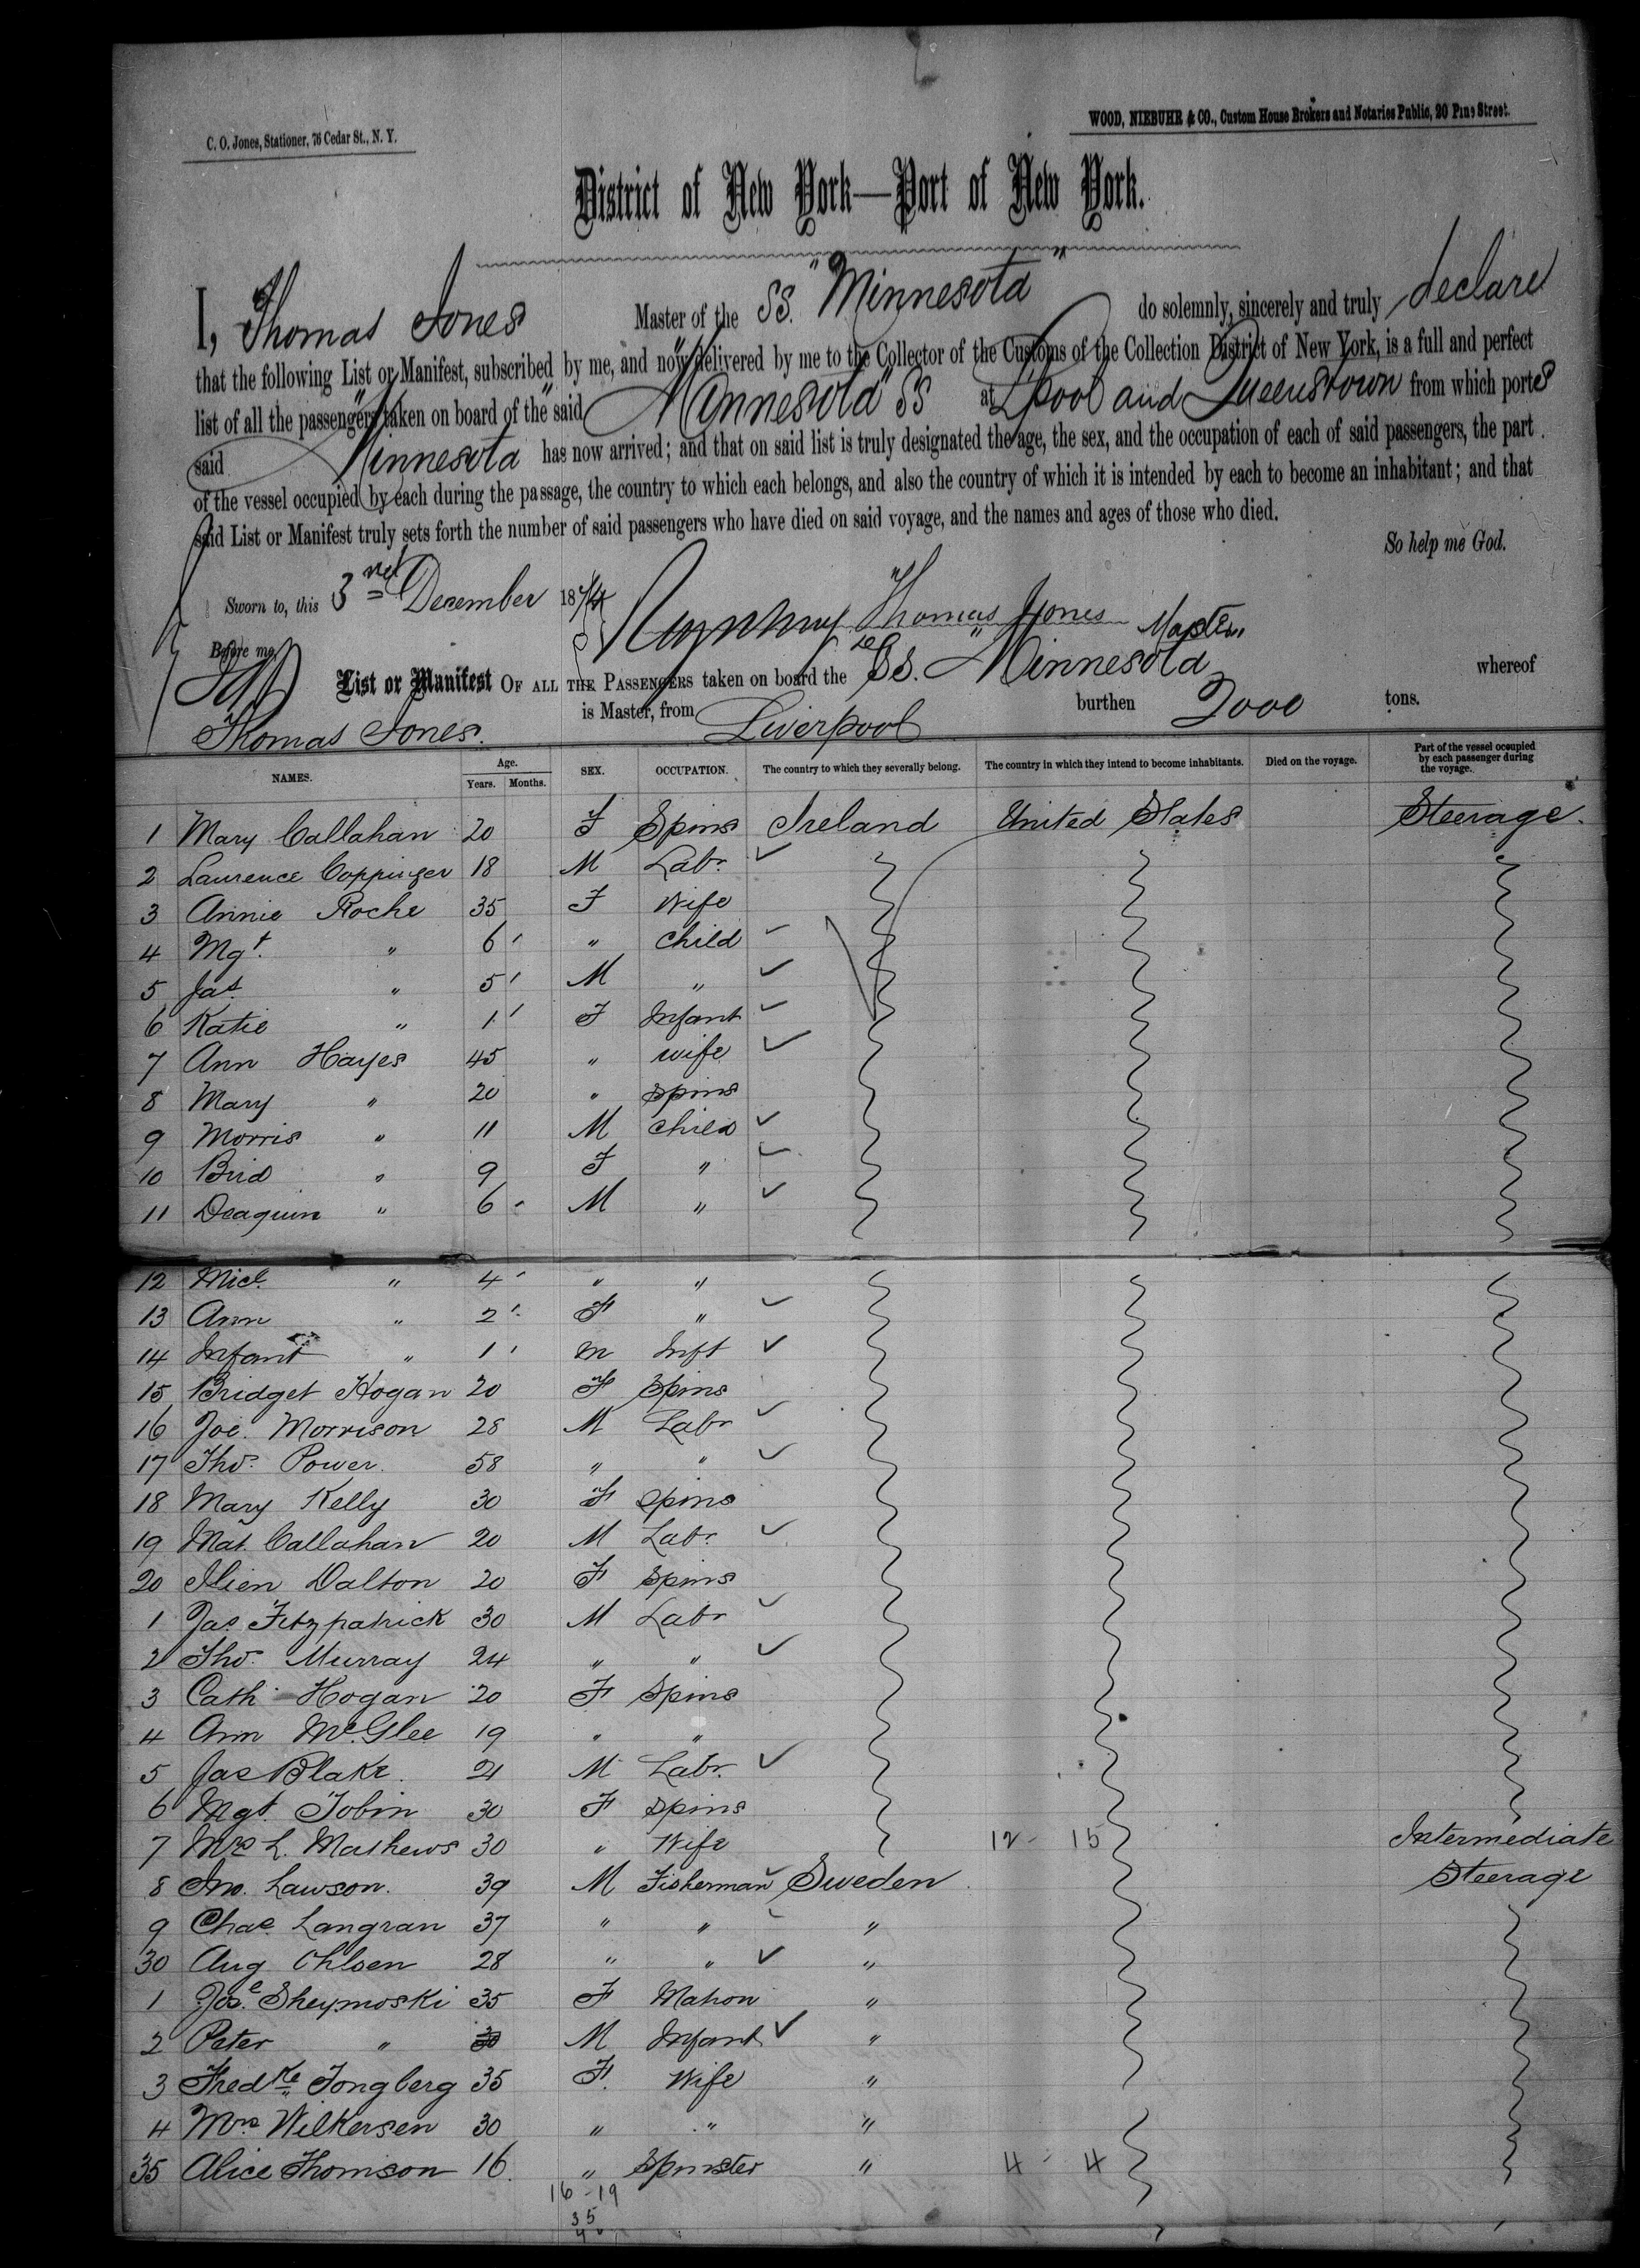 C. O. Jones, Stationer, 76 Cedar St., N. Y.
WOOD, NIEBUHR & CO., Custom House Brokers and Notaries Public, 20 Pine Street.
District of New York—Port of New York.
I, Thomas Jones Master of the SS. "Minnesota" do solemnly, sincerely and truly declare
that the following List or Manifest, subscribed by me, and now delivered by me to the Collector of the Customs of the Collection District of New York, is a full and perfect
list of all the passengers taken on board of the said "Minnesota" SS at Lpool and Queenstown from which ports
said Minnesota has now arrived; and that on said list is truly designated the age, the sex, and the occupation of each of said passengers, the part
of the vessel occupied by each during the passage, the country to which each belongs, and also the country of which it is intended by each to become an inhabitant; and that
said List or Manifest truly sets forth the number of said passengers who have died on said voyage, and the names and ages of those who died.
So help me God.
Sworn to, this 3rd December 1874
Thomas Jones Master
Before me
List or Manifest OF ALL THE PASSENGERS taken on board the SS. Minnesota whereof
Thomas Jones. is Master, from Liverpool burthen 2000 tons.
NAMES. Age. Years. Months. SEX. OCCUPATION. The country to which they severally belong. The country in which they intend to become inhabitants. Died on the voyage. Part of the vessel occupied by each passenger during the voyage.
1 Mary Callahan 20 F Spins Ireland United States Steerage.
2 Laurence Coppinger 18 M Labr.
3 Annie Roche 35 F Wife
4 Mgt. " 6 " Child
5 Jas. " 5 M "
6 Katie " 1 F Infant
7 Ann Hayes 45 " wife
8 Mary " 20 " spins
9 Morris " 11 M child
10 Brid " 9 F "
11 " 6 M "
12 Micl. " 4 " "
13 Ann " 2 F "
14 Infant " 1 m Inft
15 Bridget Hogan 20 F Spins
16 Joe. Morrison 28 M Labr
17 Thos. Power. 58 " "
18 Mary Kelly 30 F Spins
19 Mat. Callahan 20 M Labr.
20 Dalton 20 F Spins
1 Jas. Fitzpatrick 30 M Labr
2 Thos. Murray 24 " "
3 Cath Hogan 20 F Spins
4 Ann McGlee 19 " "
5 Jas Blake. 21 M Labr.
6 Mgt. Tobin 30 F spins
7 Mrs L. Mathews 30 " Wife 12 - 15 Intermediate
8 Jno. Lawson. 39 M Fisherman Sweden Steerage
9 Chas. Langran 37 " " "
30 Aug Ohlsen 28 " " "
1 Jose. Sheymoski 35 F Matron "
2 Peter " M Infant "
3 Fredke Tongberg 35 F. Wife "
4 Mrs Wilkersen 30 " " "
35 Alice Thomson 16. " Spinster " 4 - 4
16 - 19
35